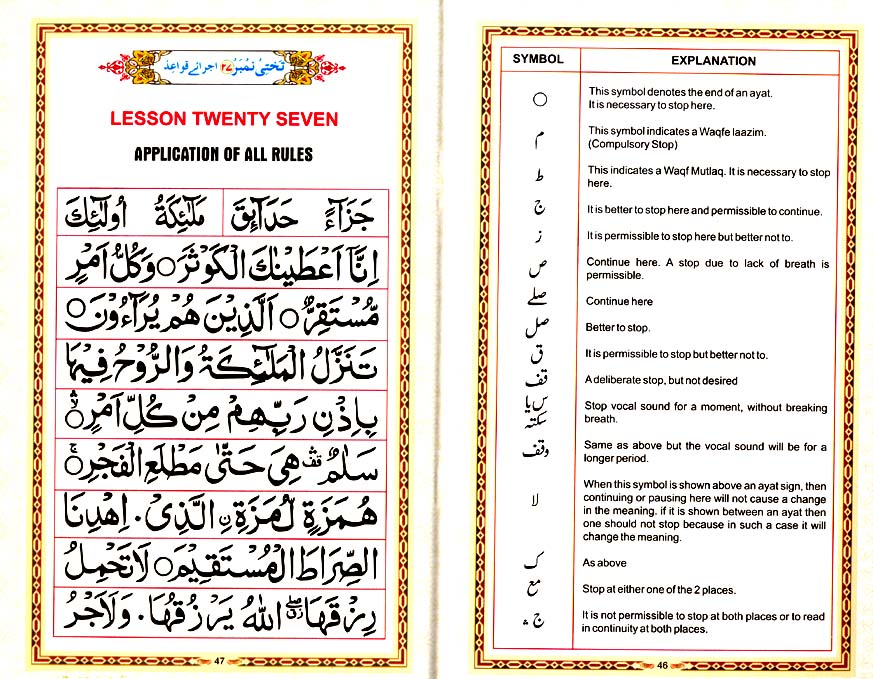 تختی نمبر ۲۷ اجرائے قواعد
LESSON TWENTY SEVEN
APPLICATION OF ALL RULES
جَزَآءً حَدَآئِقَ مَلٰٓئِكَةُ اُولٰٓئِكَ
اِنَّاۤ اَعْطَيْنٰكَ الْكَوْثَرَ○ وَكُلُّ اَمْرٍ
مُّسْتَقِرٌّ○ اَلَّذِيْنَ هُمْ يُرَآءُوْنَ○
تَنَزَّلُ الْمَلٰٓئِكَةُ وَالرُّوْحُ فِيْهَا
بِاِذْنِ رَبِّهِمْ مِنْ كُلِّ اَمْرٍ○ۙ
سَلٰمٌ قف هِيَ حَتّٰى مَطْلَعِ الْفَجْرِ○
هُمَزَةٍ لُّمَزَةِ نِ الَّذِىْ. اِهْدِنَا
الصِّرَاطَ الْمُسْتَقِيْمَ○ لَا تَحْمِلُ
رِزْقَهَا اَللهُ يَرْزُقُهَا. وَلَاَجْرُ
47
SYMBOL EXPLANATION
○ This symbol denotes the end of an ayat.
It is necessary to stop here.
م This symbol indicates a Waqfe laazim.
(Compulsory Stop)
ط This indicates a Waqf Mutlaq. It is necessary to stop
here.
ج It is better to stop here and permissible to continue.
ز It is permissible to stop here but better not to.
ص Continue here. A stop due to lack of breath is
permissible.
صلے Continue here
صل Better to stop.
ق It is permissible to stop but better not to.
قف A deliberate stop, but not desired
س یا Stop vocal sound for a moment, without breaking
سکتہ breath.
وقف Same as above but the vocal sound will be for a
longer period.
When this symbol is shown above an ayat sign, then
continuing or pausing here will not cause a change
لا in the meaning. if it is shown between an ayat then
one should not stop because in such a case it will
change the meaning.
ک As above
مع Stop at either one of the 2 places.
ج ۛ It is not permissible to stop at both places or to read
in continuity at both places.
46